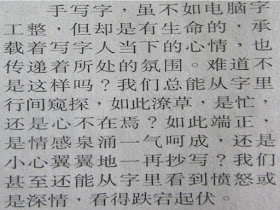 手写字，虽不如电脑字
工整，但却是有生命的，承
载着写字人当下的心情，也
传递着所处的氛围。难道不
是这样吗？我们总能从字里
行间窥探，如此潦草，是忙，
还是心不在焉？如此端正，
是情感泉涌一气呵成，还是
小心翼翼地一再抄写？我们
甚至还能从字里看到愤怒或
是深情，看得跌宕起伏。